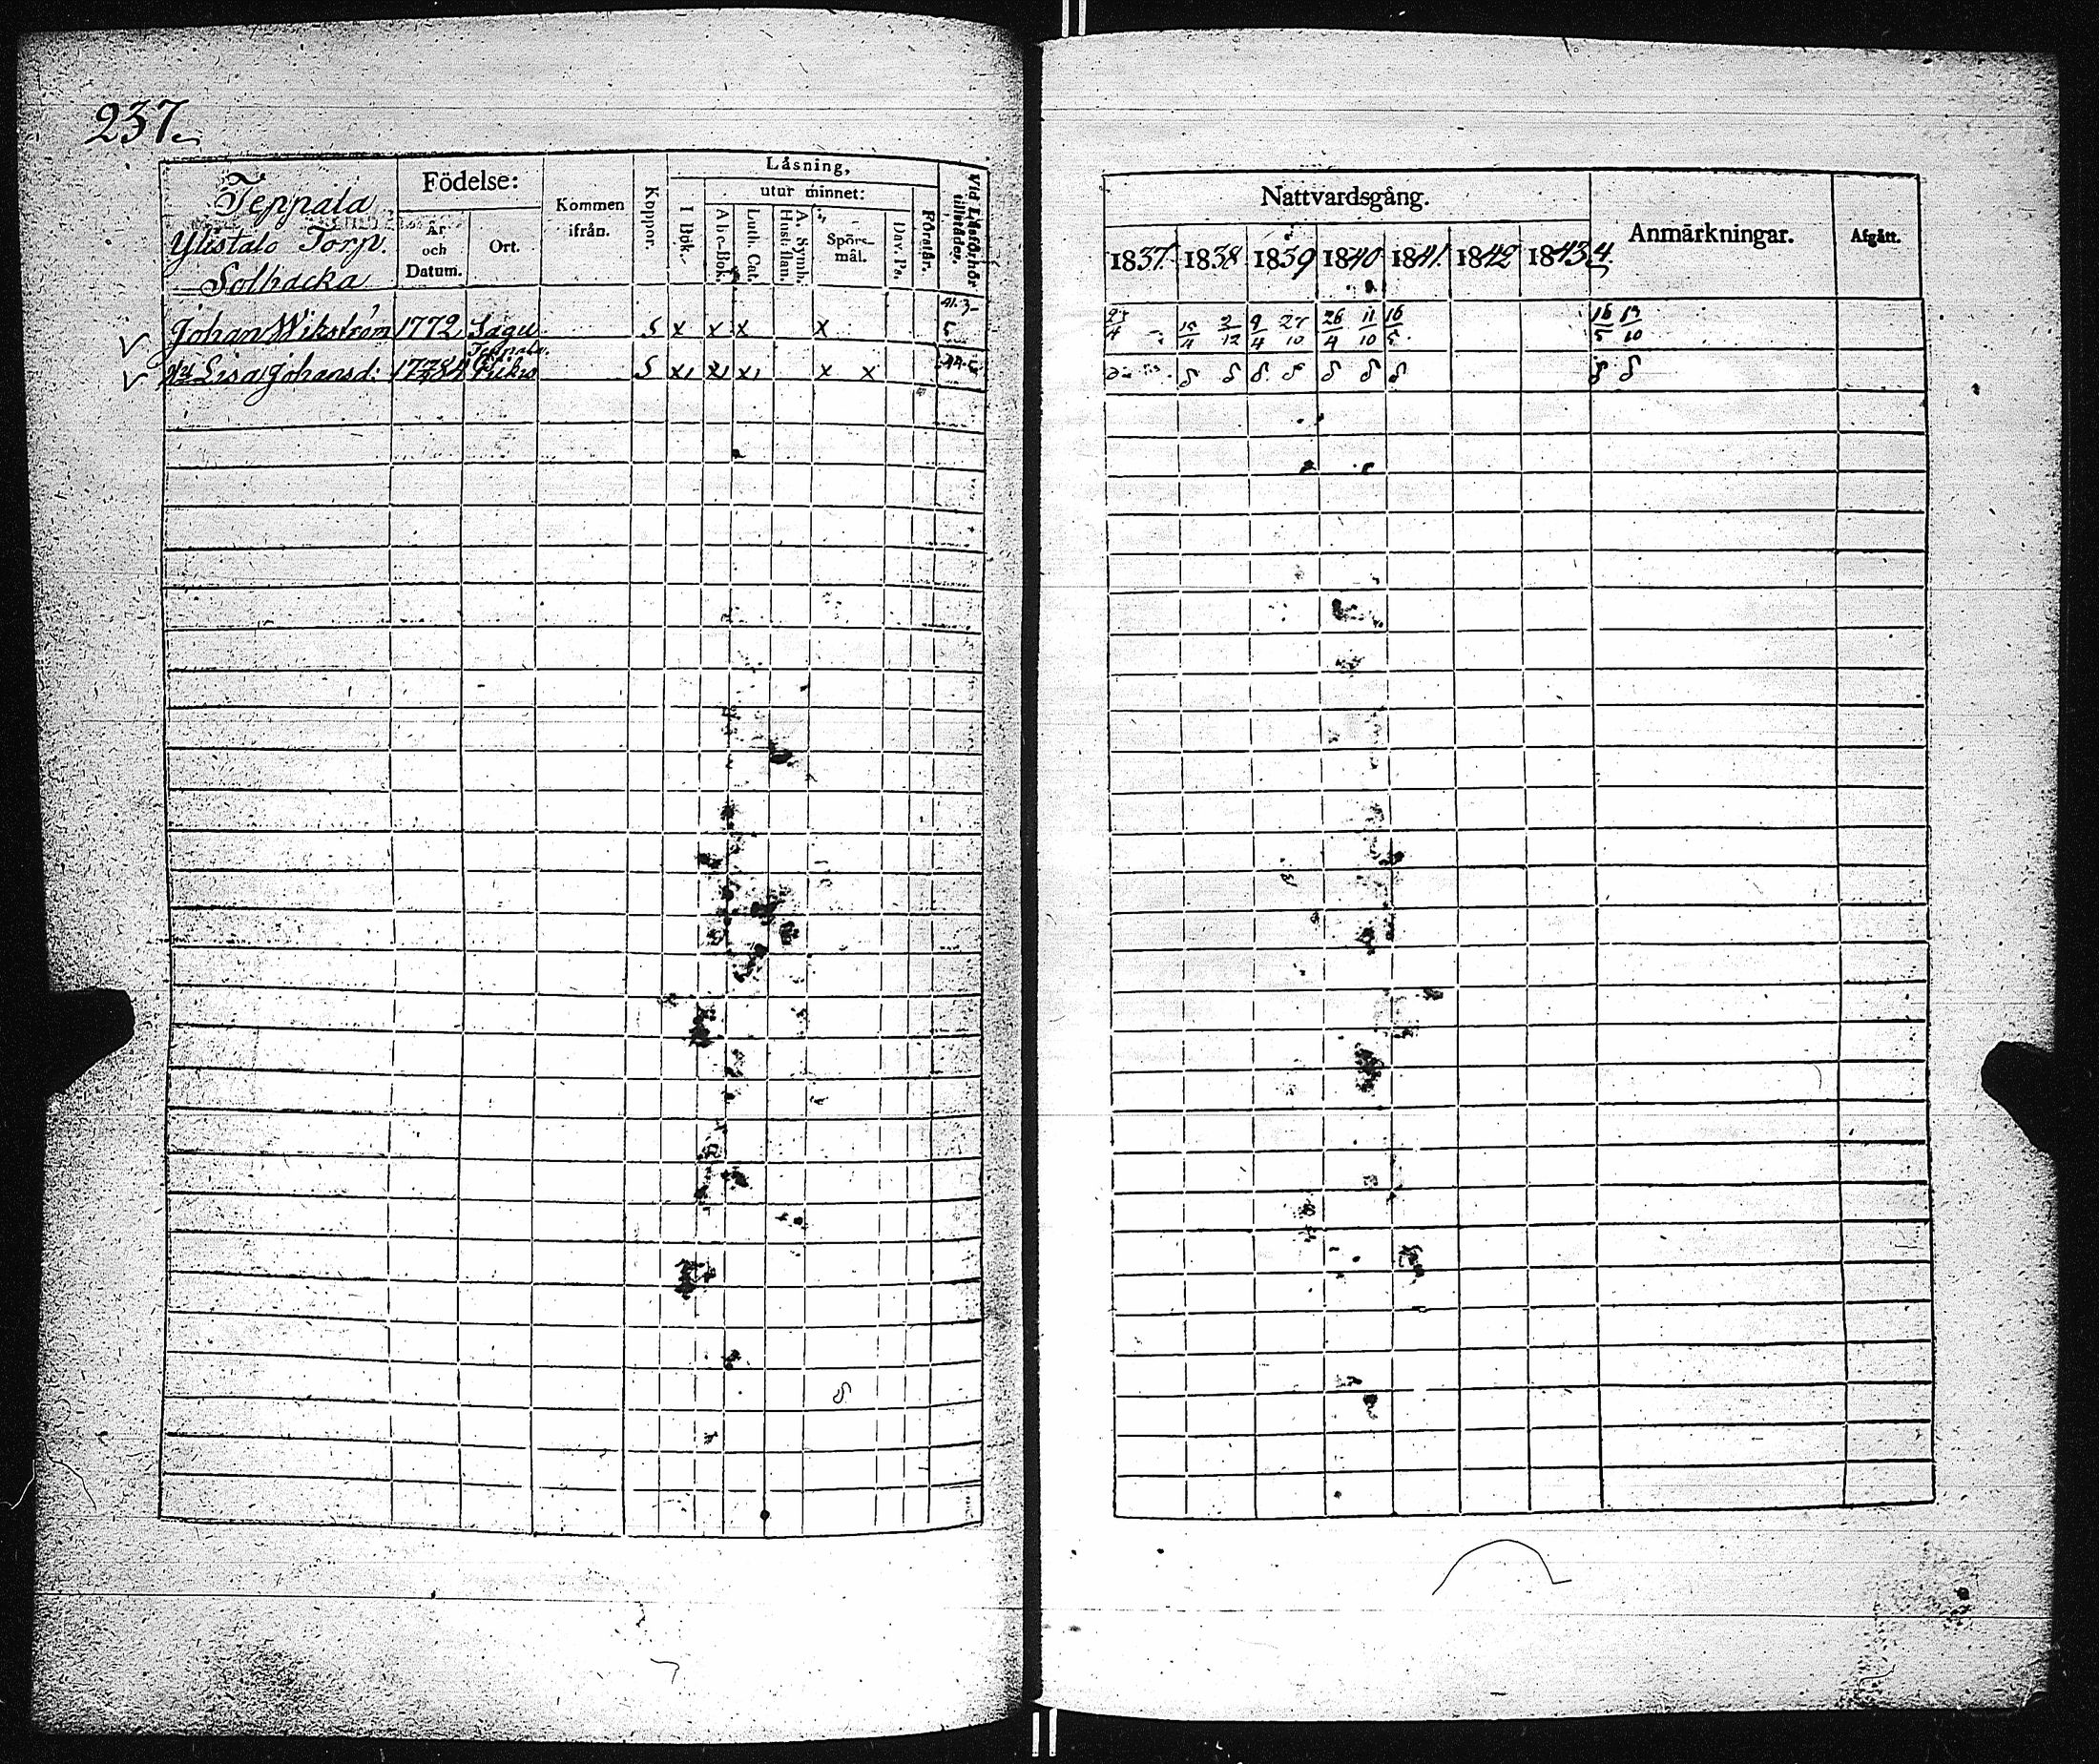 237.
Teppala
Ylistalo Torp.
Solbacka
Födelse:
År och Datum.
Ort.
Kommen ifrån.
Koppor.
Låsning,
I Bok.
utur minnet:
Abc-Bok.
Luth. Cat.
A. Symb. Hust. flan.
Spörs-mål.
Dav. Ps.
Förstår.
Vid Läsförhör tillstådes.
Johan Wikström 1772 Sagu S x x x x 41. 3
Hu Lisa Johansd: Teppala. S x x x x x
Nattvardsgång.
1837. 1838 1839 1840 1841. 1842 1843. 4.
Anmärkningar.
Afgått.
2/12 9/4 27/10 26/4 11/10 16/5 16/5 /10
δ δ δ δ δ δ δ δ δ